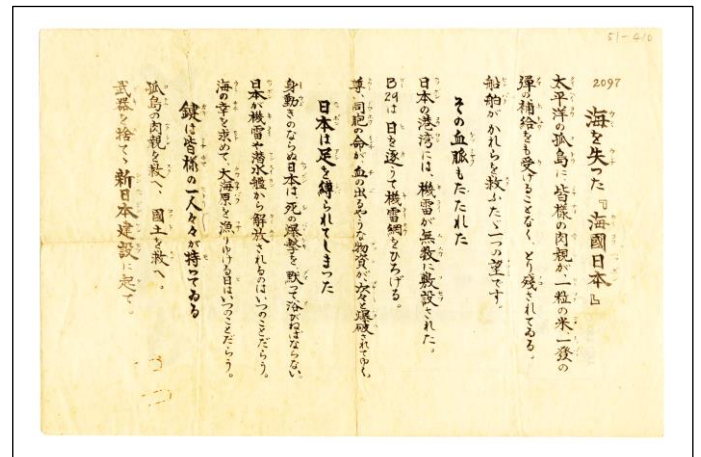 51-410
2097
海を失った『海國日本』
太平洋の孤島に、皆様の肉親が、一粒の米、一發の
彈の補給をも受けることなく、とり殘されてゐる。
船舶がかれらを救ふたゞ一つの望です。
その血脈もたゝれた
日本の港湾には、機雷が無數に敷設された。
B29は日を逐うて機雷網をひろげる。
尊い同胞の命が、血の出るやうな物資が、次々と爆破されてゆく。
日本は足を縛られてしまつた
身動きのならぬ日本は、死の爆撃を默つて浴びねばならない。
日本が機雷や潜水艦から解放されるのはいつのことだらう。
海の幸を求めて、大海原を漁りゆける日はいつのことだらう。
鍵は皆様の一人々々が持つてゐる
孤島の肉親を救へ、國土を救へ。
武器を捨てゝ新日本建設に起て。